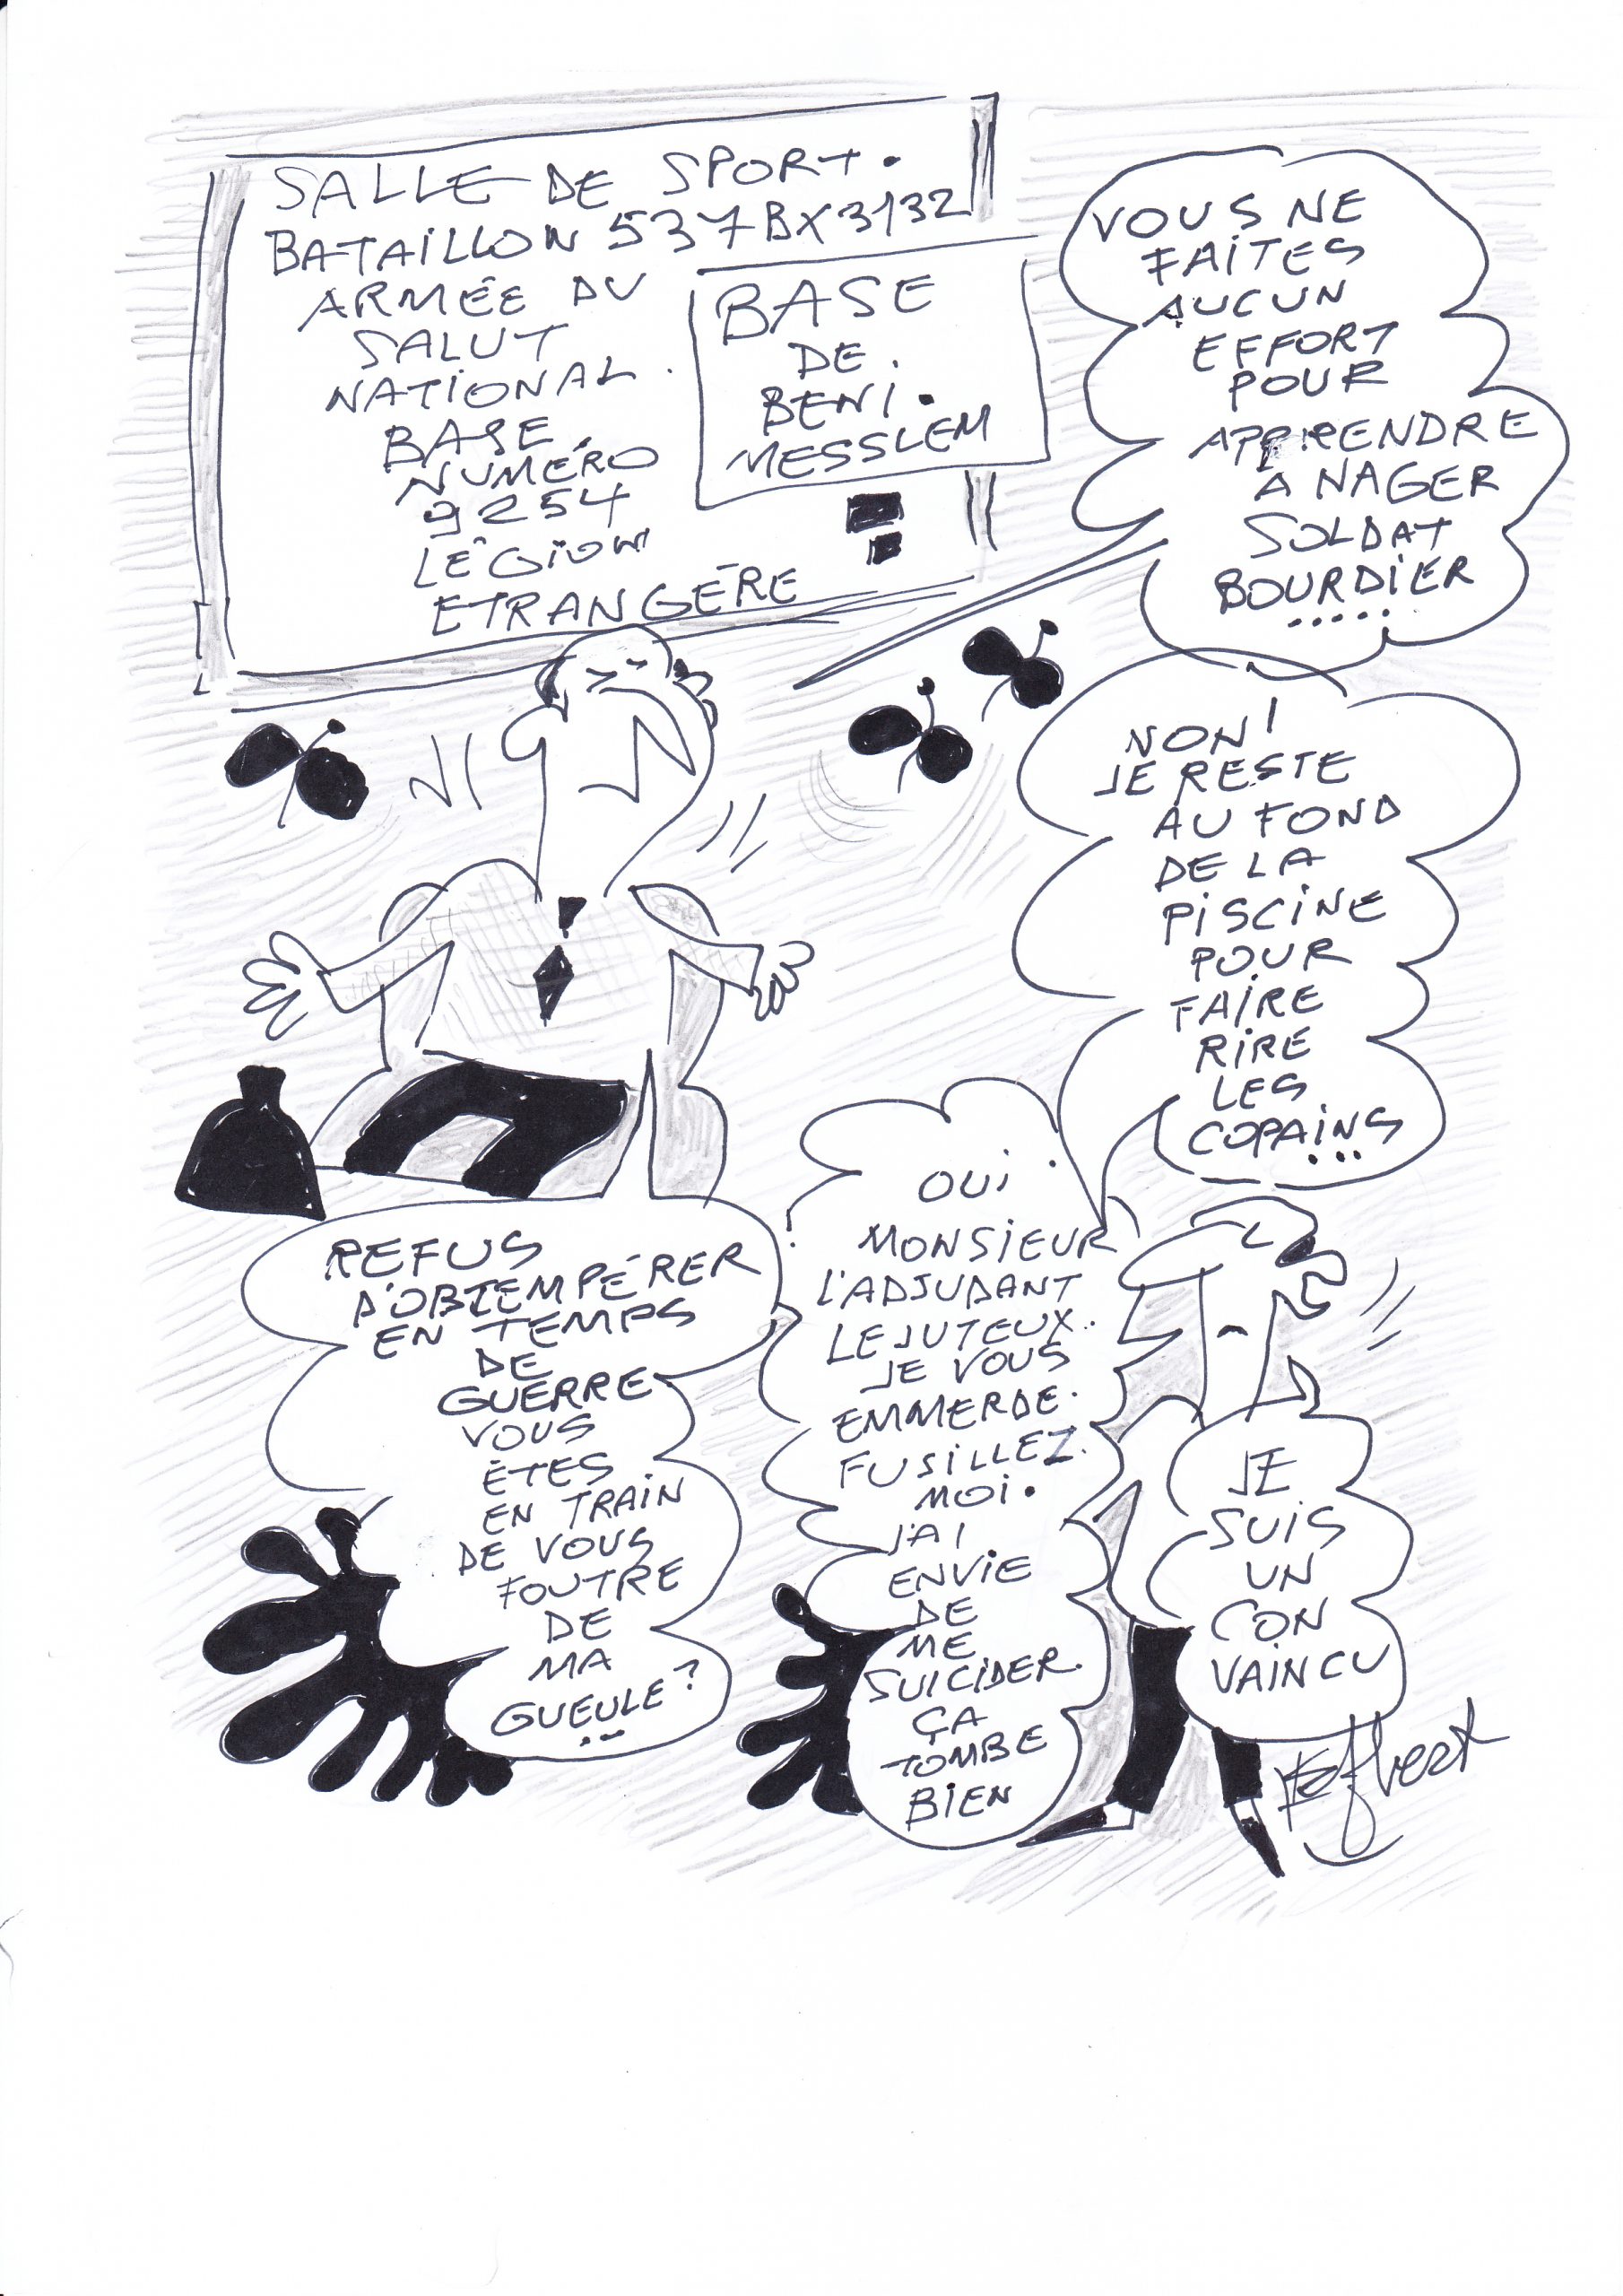 SALLE DE SPORT.
BATAILLON 537BX3132
ARMÉE DU
SALUT
NATIONAL.
BASE
NUMÉRO
9254
LÉGION
ETRANGÉRE
BASE
DE.
BENI.
MESSLEM
VOUS NE
FAITES
AUCUN
EFFORT
POUR
APPRENDRE
A NAGER
SOLDAT
BOURDIER
.....
NON!
JE RESTE
AU FOND
DE LA
PISCINE
POUR
FAIRE
RIRE
LES
COPAINS
...
REFUS
D'OBTEMPÉRER
EN TEMPS
DE
GUERRE
VOUS
ÊTES
EN TRAIN
DE VOUS
FOUTRE
DE
MA
GUEULE?
..
OUI.
MONSIEUR
L'ADJUDANT
LE JUTEUX.
JE VOUS
EMMERDE.
FUSILLEZ.
MOI.
J'AI
ENVIE
DE
ME
SUICIDER.
ÇA
TOMBE
BIEN
JE
SUIS
UN
CON
VAINCU